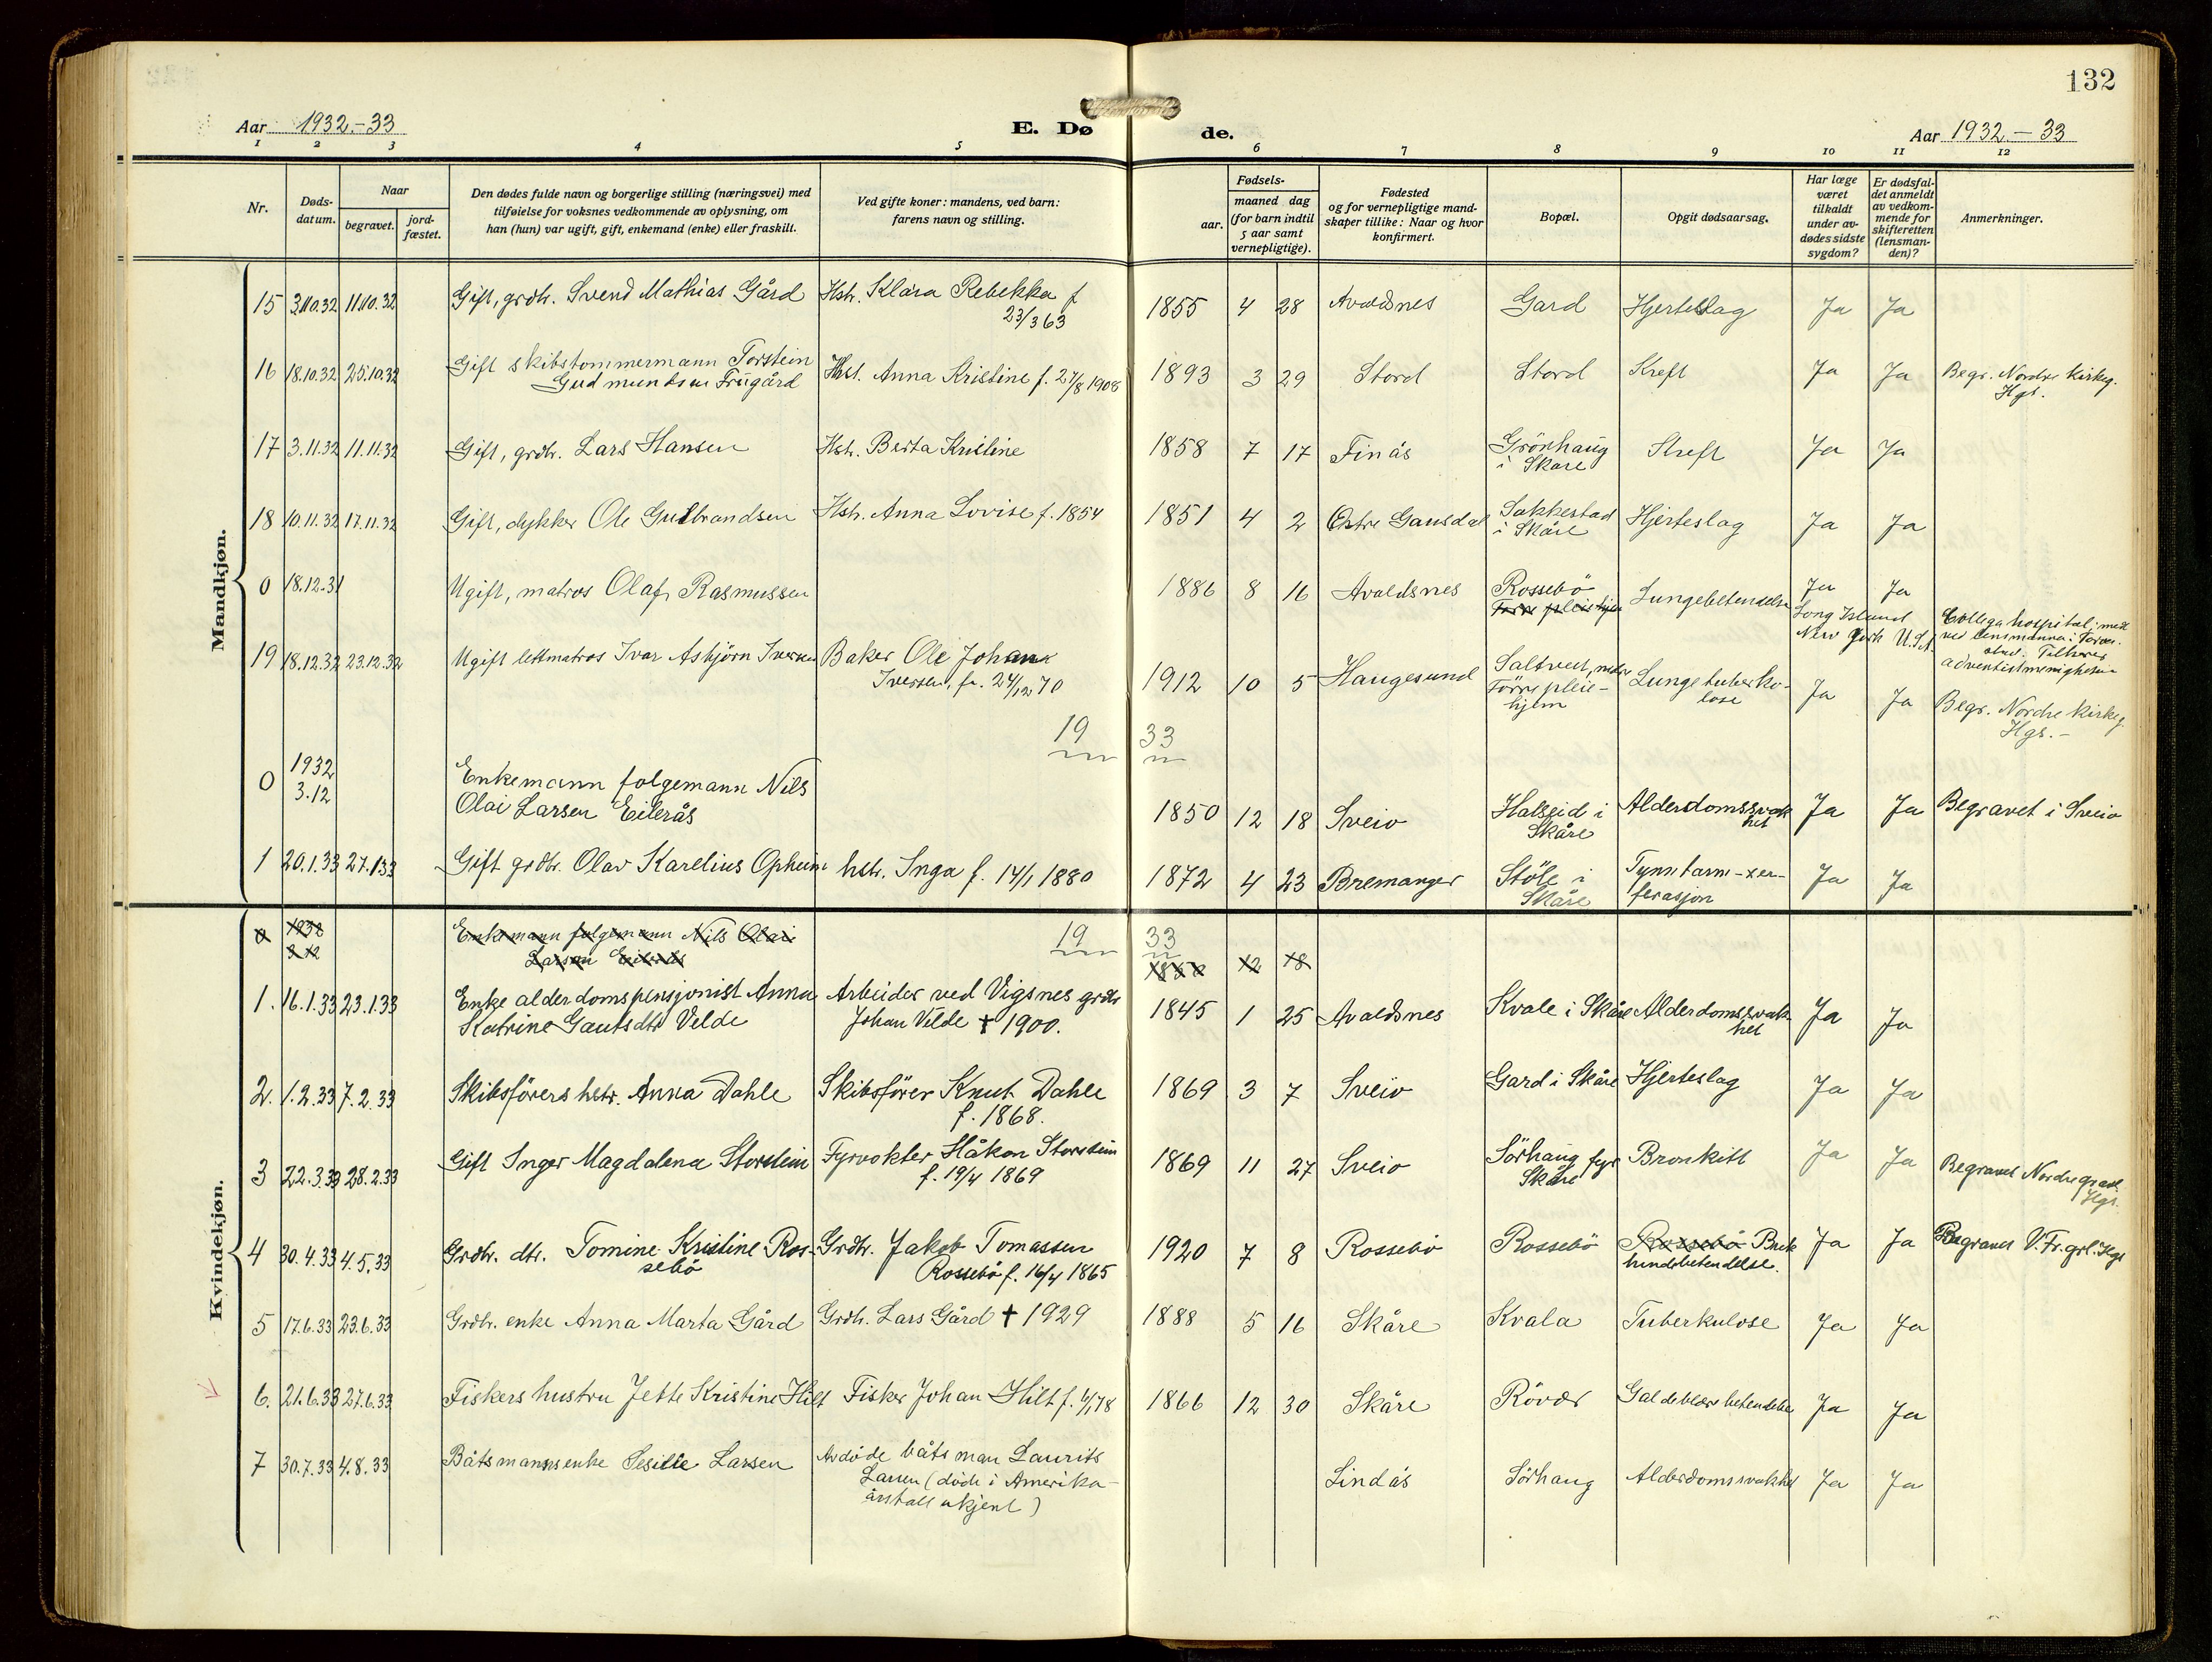 132
Aar 1932.-33
E. Dø de.
Aar 1932.-33
1 2 3 4 5 6 7 8 9 10 11 12
Nr.
Døds-datum.
Naar
begravet.
jord-fæstet.
Den dødes fulde navn og borgerlige stilling (næringsvei) med
tilføielse for voksnes vedkommende av oplysning, om
han (hun) var ugift, gift, enkemand (enke) eller fraskilt.
Ved gifte koner: mandens, ved barn:
farens navn og stilling.
Fødsels-
aar.
maaned dag
(for barn indtil
5 aar samt
vernepligtige).
Fødested
og for vernepligtige mand-
skaper tillike: Naar og hvor
konfirmert.
Bopæl.
Opgit dødsaarsag.
Har læge
været
tilkaldt
under av-
dødes sidste
sygdom?
Er dødsfal-
det anmeldt
av vedkom-
mende for
skifteretten
(lensman-
den)?
Anmerkninger.
Mandkjøn.
15 3.10.32 11.10.32 Gift, grdbr. Svend Mathias Gård Hstr. Klara Rebekka f 23/3 63 1855 4 28 Avaldsnes Gard Hjerteslag Ja Ja
16 18.10.32 25.10.32 Gift skibstømmermann Torstein
Gudmundsen Frugård Hst. Anna Kristine f. 27/8 1908 1893 3 29 Stord Stord Kreft Ja Ja Begr. Nordre kirkeg.
Hgs.
17 3.11.32 11.11.32 Gift, grdbr. Lars Hansen Hstr. Berta Kristine 1858 7 17 Finås Grönhaug
i Skåre Kreft Ja Ja
18 10.11.32 17.11.32 Gift, dykker Ole Gulbrandsen Hstr. Anna Lovise f. 1854 1851 4 2 Østre Gausdal Sakkestad
i Skåre Hjerteslag Ja Ja
0 18.12.31 Ugift, matros Olaf Rasmussen 1886 8 16 Avaldsnes Rossebö
Lungebetendelse Ja Ja
Long Island
New York U.S.A.
hospital; meldt
ved lensmannen i
Tilhører
adventistmenigheten
19 18.12.32 23.12.32 Ugift lettmatros Ivar Asbjörn Iversen Baker Ole Johan
Iversen, f. 24/12 70 1912 10 5 Haugesund Saltveit, nedre
Förre pleie-
hjem Lungetuberku-
lose Ja Ja Begr. Nordre kirkeg.
Hgs.-
19 33
0 1932
3.12 Enkemann folgemann Nils
Olai Larsen Eilerås 1850 12 18 Sveio Halseid i
Skåre Alderdomssvak
het Ja Ja Begravet i Sveio
1 20.1.33 27.1.33 Gift grdbr. Olav Karelius Opheim hstr. Inga f. 14/1 1880 1872 4 23 Bremanger Stöle i
Skåre Tynntarm-per-
ferasjon Ja Ja
Kvindekjøn.
0 1932
3.12 Enkemann folgemann Nils Olai
Larsen Eilerås 19 33
1850 12 18
1. 16.1.33 23.1.33 Enke alderdomspensjonist Anna
Katrine Gautsdtr Velde Arbeider ved Vigsnes grube
Johan Velde † 1900. 1845 1 25 Avaldsnes Kvale i Skåre Alderdomssvak-
het Ja Ja
2. 1.2.33 7.2.33 Skibsförers hstr. Anna Dahle Skibsförer Knut Dahle
f. 1868. 1869 3 7 Sveio Gard i Skåre Hjerteslag Ja Ja
3 22.3.33 28.2.33 Gift Inger Magdalena Storstein Fyrvokter Håkon Storstein
f. 19/4 1869 1869 11 27 Sveio Sörhaug fyr
Skåre Bronkitt Ja Ja Begravet Nordre gravl.
Hgs.
4 30.4.33 4.5.33 Grdbr. dtr. Tomine Kristine Ros-
sebö Grdbr. Jakob Tomassen
Rossebö f. 16/4 1865 1920 7 8 Rossebö Rossebö Rossebö Buk
hindebetendelse. Ja Ja Begravet V.Fr.grl. Hgs
5 17.6.33 23.6.33 Grdbr. enke Anna Marta Gård Grdb. Lars Gård † 1929 1888 5 16 Skåre Kvala Tuberkulose Ja Ja
6. 21.6.33 27.6.33 Fiskers hustru Jette Kristine Hilt Fisker Johan Hilt f. 6/1 78 1866 12 30 Skåre Rövær Galdeblærebetendelse Ja Ja
7 30.7.33 4.8.33 Båtsmannsenke Sesilie Larsen Avdöde båtsman Laurits
Larsen (döde i Amerika
årstall ukjent) Lindås Sörhaug Alderdomssvakhet Ja Ja